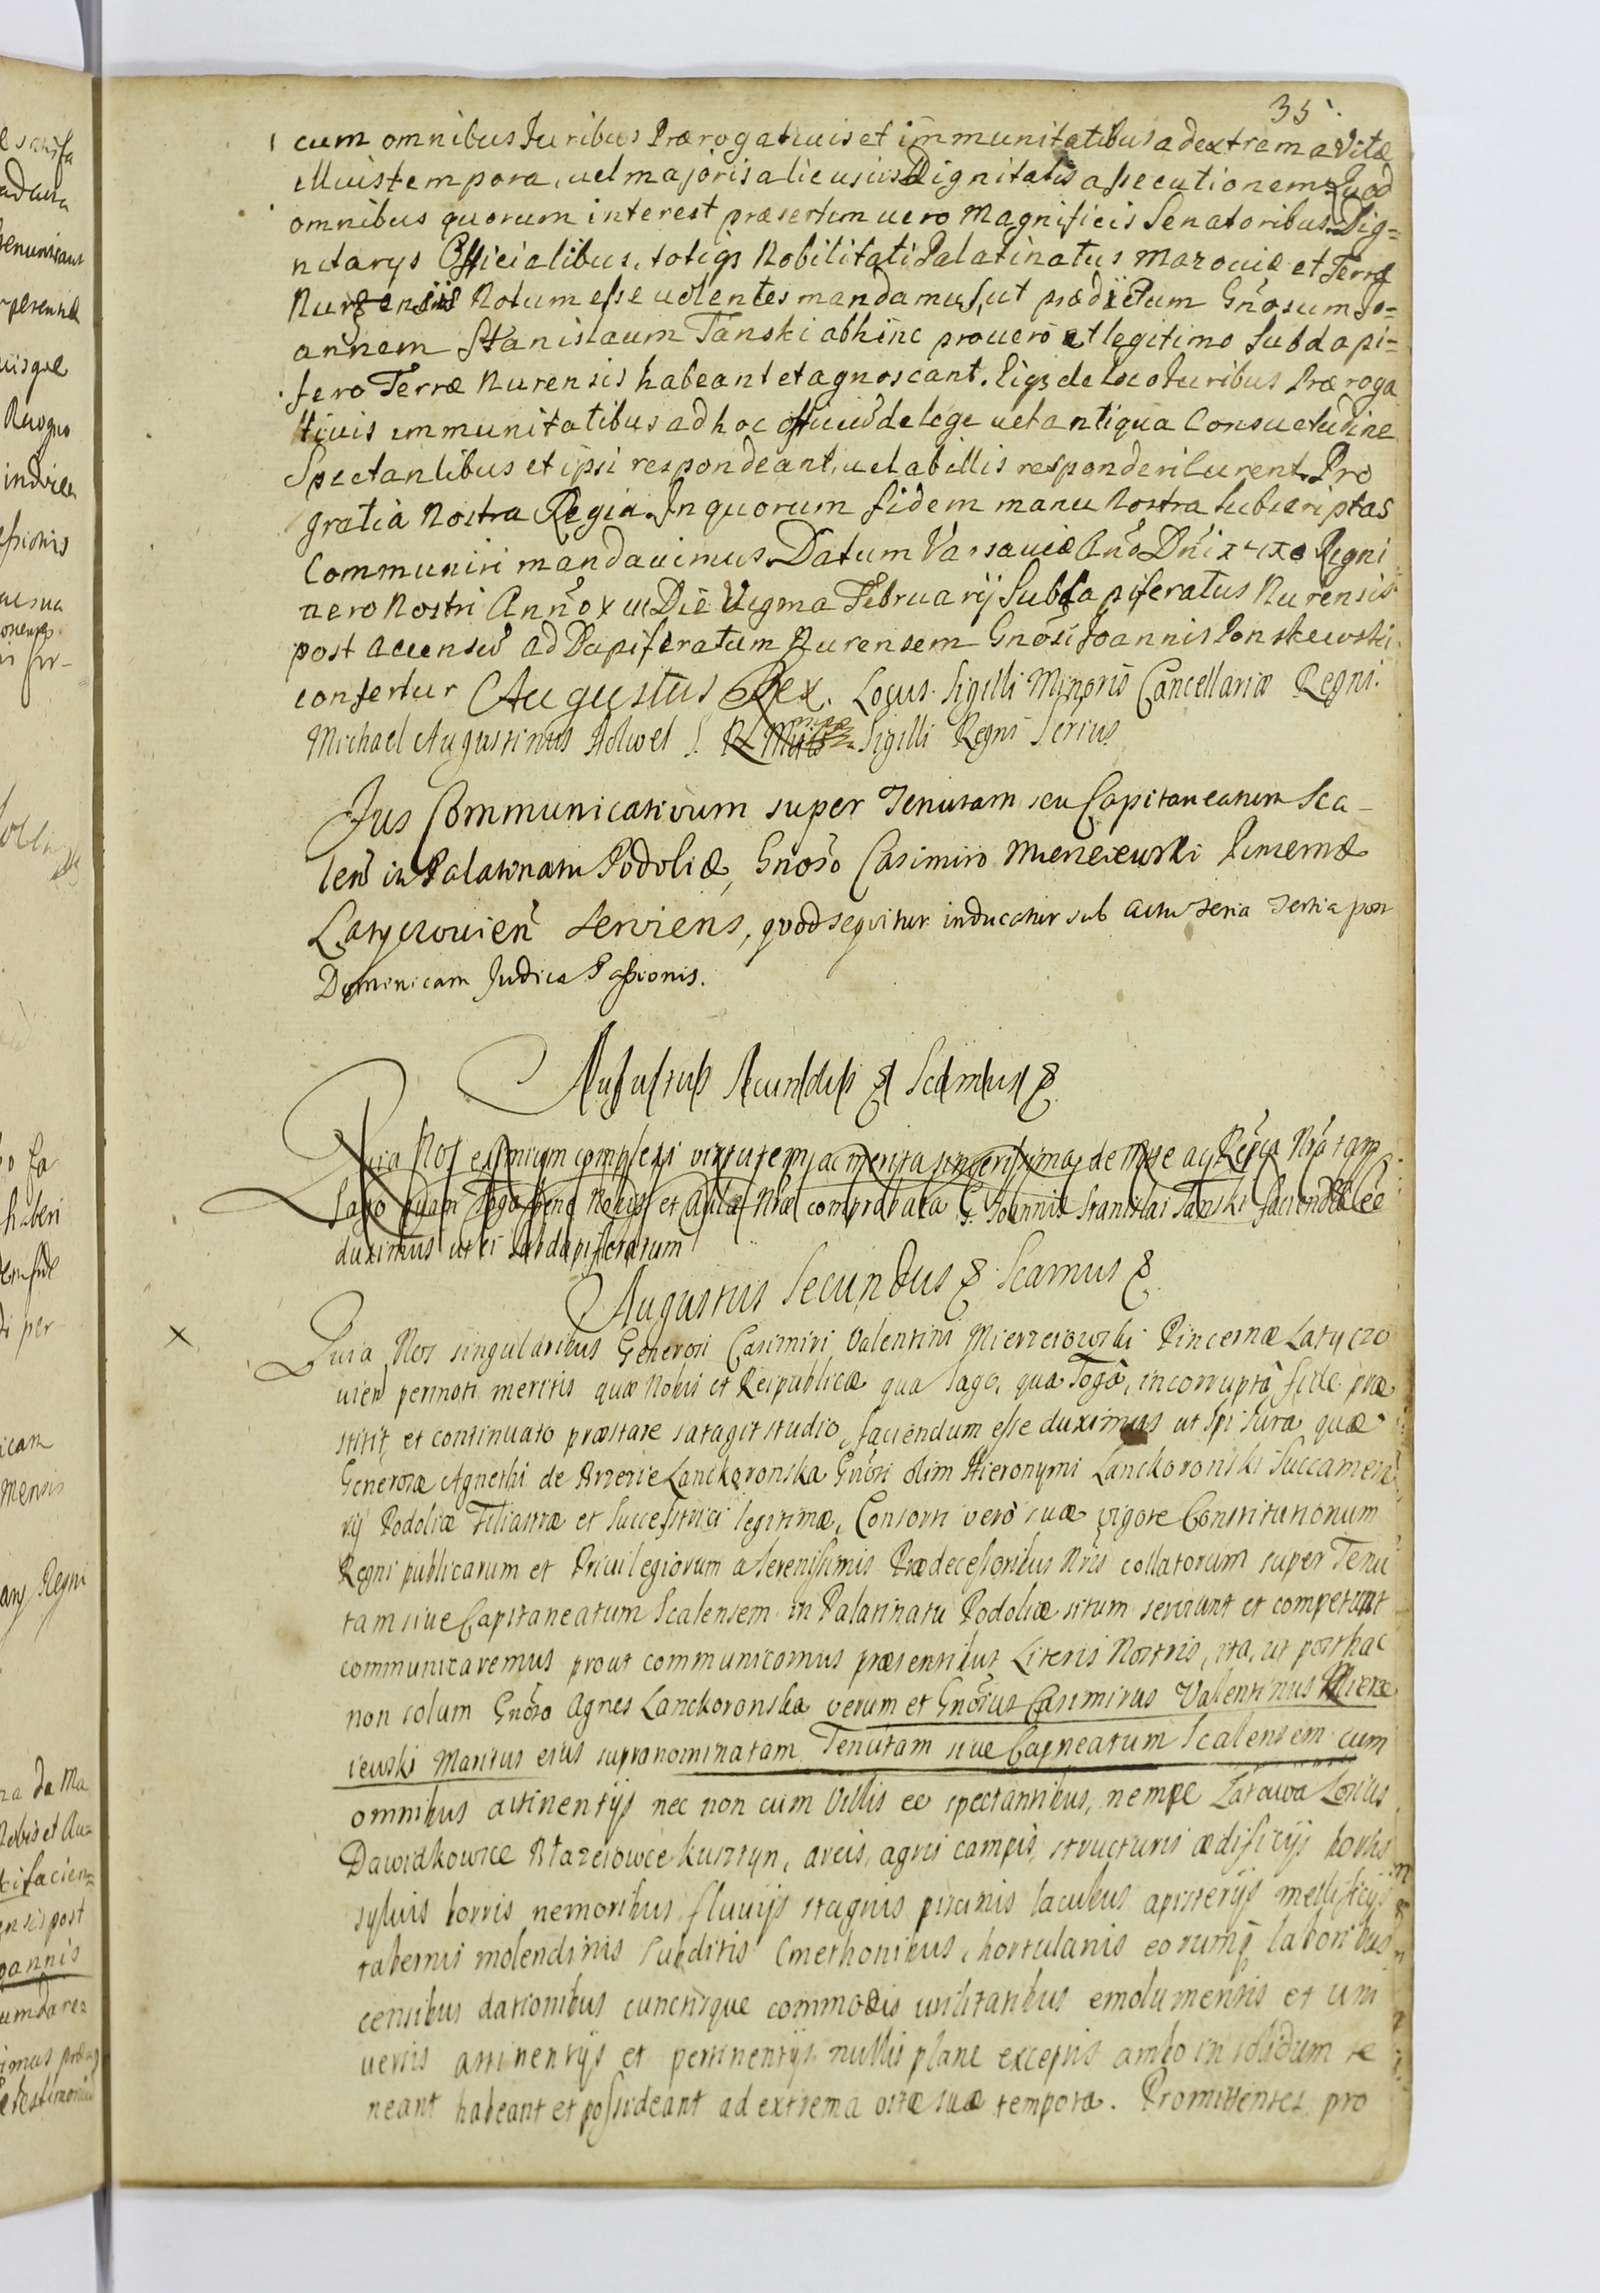 35.
cum omnibus Juribus Prærogativis et immunitatibus ad extrema Vitæ
illius tempora, vel majoris alicuius Dignitatis assecutionem. Quod
omnibus quorum interest præsertim vero Magnificis Senatoribus Dig=
nitarys Officialibus, totiqs Nobilitati Palatinatus Mazoviæ et Terræ
Notum esse volentes mandamus, ut prædictum Gnosum Jo=
annem Stanislaum Tanski abhinc pro vero et legitimo Subdapi=
fero Terræ Nurensis habeant et agnoscant. Eiqs de loco Juribus Præroga
tivis immunitatibus ad hoc officiũ de lege vel antiqua Consuetudine
Spectantibus et ipsi respondeant, vel ab illis responderi curent. Pro
gratia Nostra Regia. In quorum fidem manu Nostra subscriptas
Communiri mandavimus. Datum Varsaviæ Año Dñi Regni
vero Nostri Anno Die Vigma Februarij Subdapiferatus Nurensis
post ad Dapiferatum Nurensem Gnosi Joannis
confertur Augustus Rex. Locus Sigilli Minoris Cancellariæ Regni.
Michael Augustinus S. R. Sigilli Regni Scrius
Jus Communicativum super Tenutam seu Capitaneatum Sca-
leñ in Palatinatu Podoliæ, Gnoso Casimiro Mierzeiewski Pincernæ
Latyczovieñ serviens, quod sequitur inducatur sub actu feria tertia post
Dominicam Judica Passionis.
Augustus Secundus & Scimus &
Quia Nos eximiam complexi virtutem ac merita de Nose ac Regia Nra tam
Sago quam Toga bene Nobis et Aulæ Nræ comprobata G. Joannis Stanislai Tanski faciendũ eẽ
duximus ut ei Subdapiferatum
Augustus Secundus & Scamus &
Quia Nos singularibus Generosi Casimiri Valentini Mierzeiowski Pincernæ Latyczo
vieñ permoti meritis quæ Nobis et Reipublicæ qua Sago, qua Togâ, incorruptâ fide præ
stitit, et continuato præstare satagit studio, faciendum esse duximus ut Ipi Jura, quæ
Generosæ Agneti de Brzezie Lanckoronska Gnosi olim Hieronymi Lanckoronski Succamera
rij Podoliæ Filiastræ et Successtrici legitimæ, Consorti vero suæ vigore Constitutionum
Regni publicarum et Privilegiorum a Serenissimis Prædecessoribus Nris collatorum super Tenu
tam sive Capitaneatum Scalensem in Palatinatu Podoliæ situm serviunt et competunt
communicaremus prout communicamus præsentibus Literis Nostris, ita, ut posthac
non solum Gnosa Agnes Lanckoronska verum et Gnosus Casimirus Valentinus Mierze
iewski Maritus eius supranominatam Tenutam sive Capneatum Scalensem cum
omnibus attinentijs nec non cum Villis eo spectantibus, nempe Latawa
Dawidkowce Blazeiowce Kusztyn, areis, agris campis, structuris ædificijs hortis
sylvis borris nemoribus fluvijs stagnis piscinis lacubus apisterijs mellificijs
tabernis molendinis Subditis Cmethonibus, hortulanis eorumq laboribus
censibus dationibus cunctisque commodis utilitatibus emolumentis et uni
versis attinentijs et pertinentijs nullis plane exceptis ambo in solidum te
neant habeant et possideant ad extrema vitæ suæ tempora. Promittentes pro